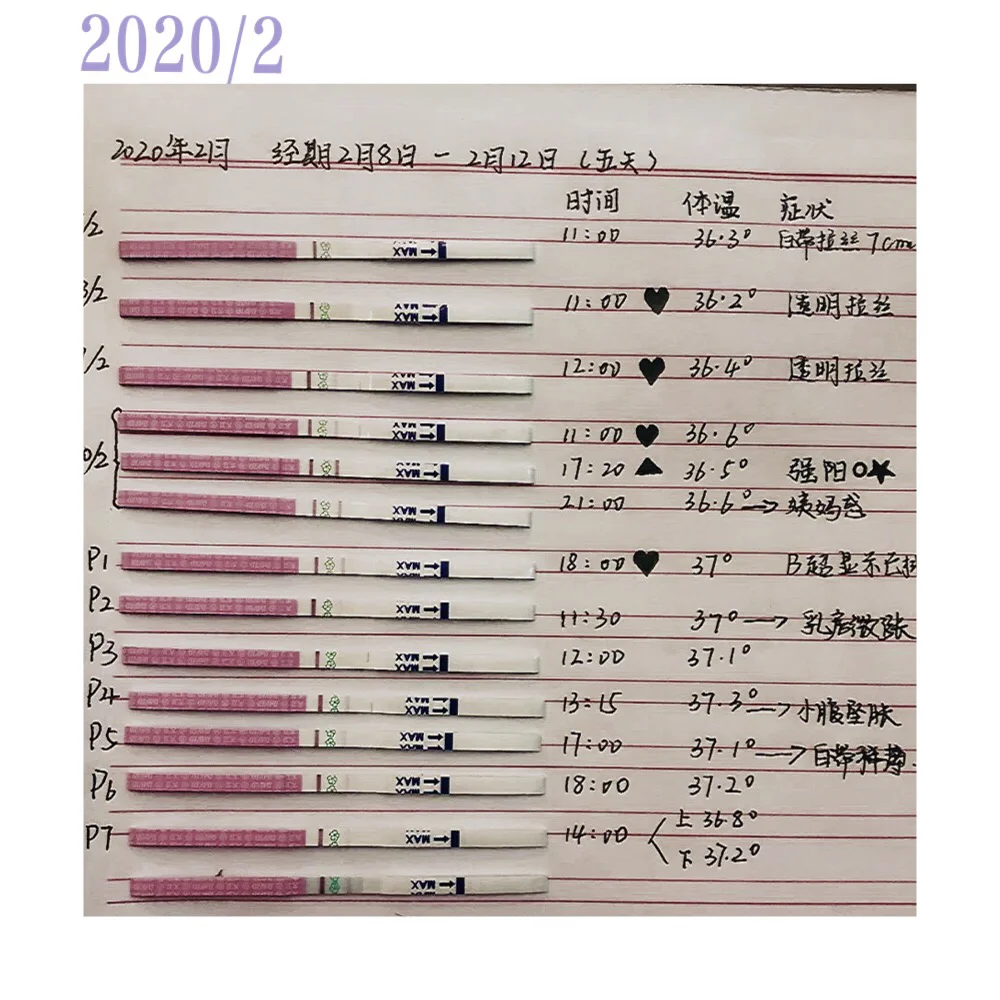 2020/2
2020年2月 经期2月8日 - 2月12日 (五天)
时间 体温 症状
/2 11:00 36.3° 白带拉丝7cm
MAX
3/2 11:00 ♥ 36.2° 透明拉丝
MAX
/2 12:00 ♥ 36.4° 透明拉丝
MAX
11:00 ♥ 36.6°
MAX
0/2 17:20 ▲ 36.5° 强阳○★
MAX
21:00 36.6° → 姨妈感
MAX
P1 18:00 ♥ 37° B超显示已排
MAX
P2 11:30 37° → 乳房微胀
MAX
P3 12:00 37.1°
MAX
P4 13:15 37.3° → 小腹坠胀
MAX
P5 17:00 37.1° → 白带稀薄
MAX
P6 18:00 37.2°
MAX
P7 14:00 上 36.8°
下 37.2°
MAX
MAX